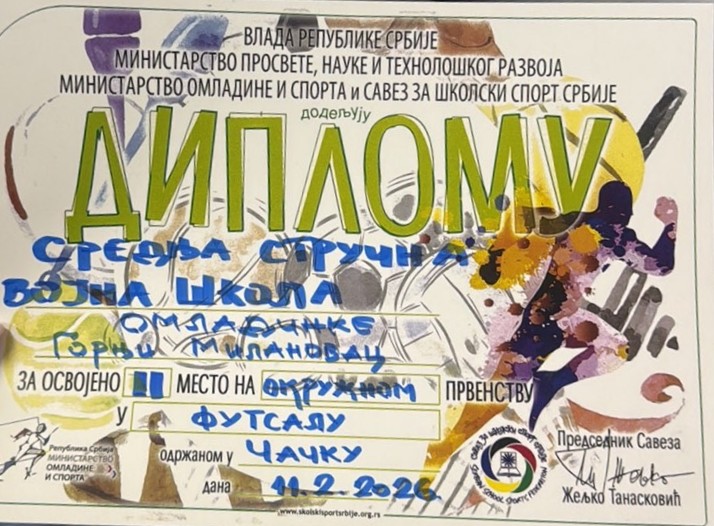 ВЛАДА РЕПУБЛИКЕ СРБИЈЕ
МИНИСТАРСТВО ПРОСВЕТЕ, НАУКЕ И ТЕХНОЛОШКОГ РАЗВОЈА
МИНИСТАРСТВО ОМЛАДИНЕ И СПОРТА и САВЕЗ ЗА ШКОЛСКИ СПОРТ СРБИЈЕ
додељују
ДИПЛОМУ
СРЕДЊА СТРУЧНА
ВОЈНА ШКОЛА
ОМЛАДИНКЕ
ГОРЊИ МИЛАНОВАЦ
ЗА ОСВОЈЕНО II МЕСТО НА ОКРУЖНОМ ПРВЕНСТВУ
У ФУТСАЛУ
одржаном у ЧАЧКУ
дана 11.2.2026.
Република Србија
МИНИСТАРСТВО
ОМЛАДИНЕ
И СПОРТА
САВЕЗ ЗА ШКОЛСКИ СПОРТ СРБИЈЕ
SERBIAN SCHOOL SPORTS FEDERATION
Председник Савеза
Жељко Танасковић
www.skolskisportsrbije.org.rs